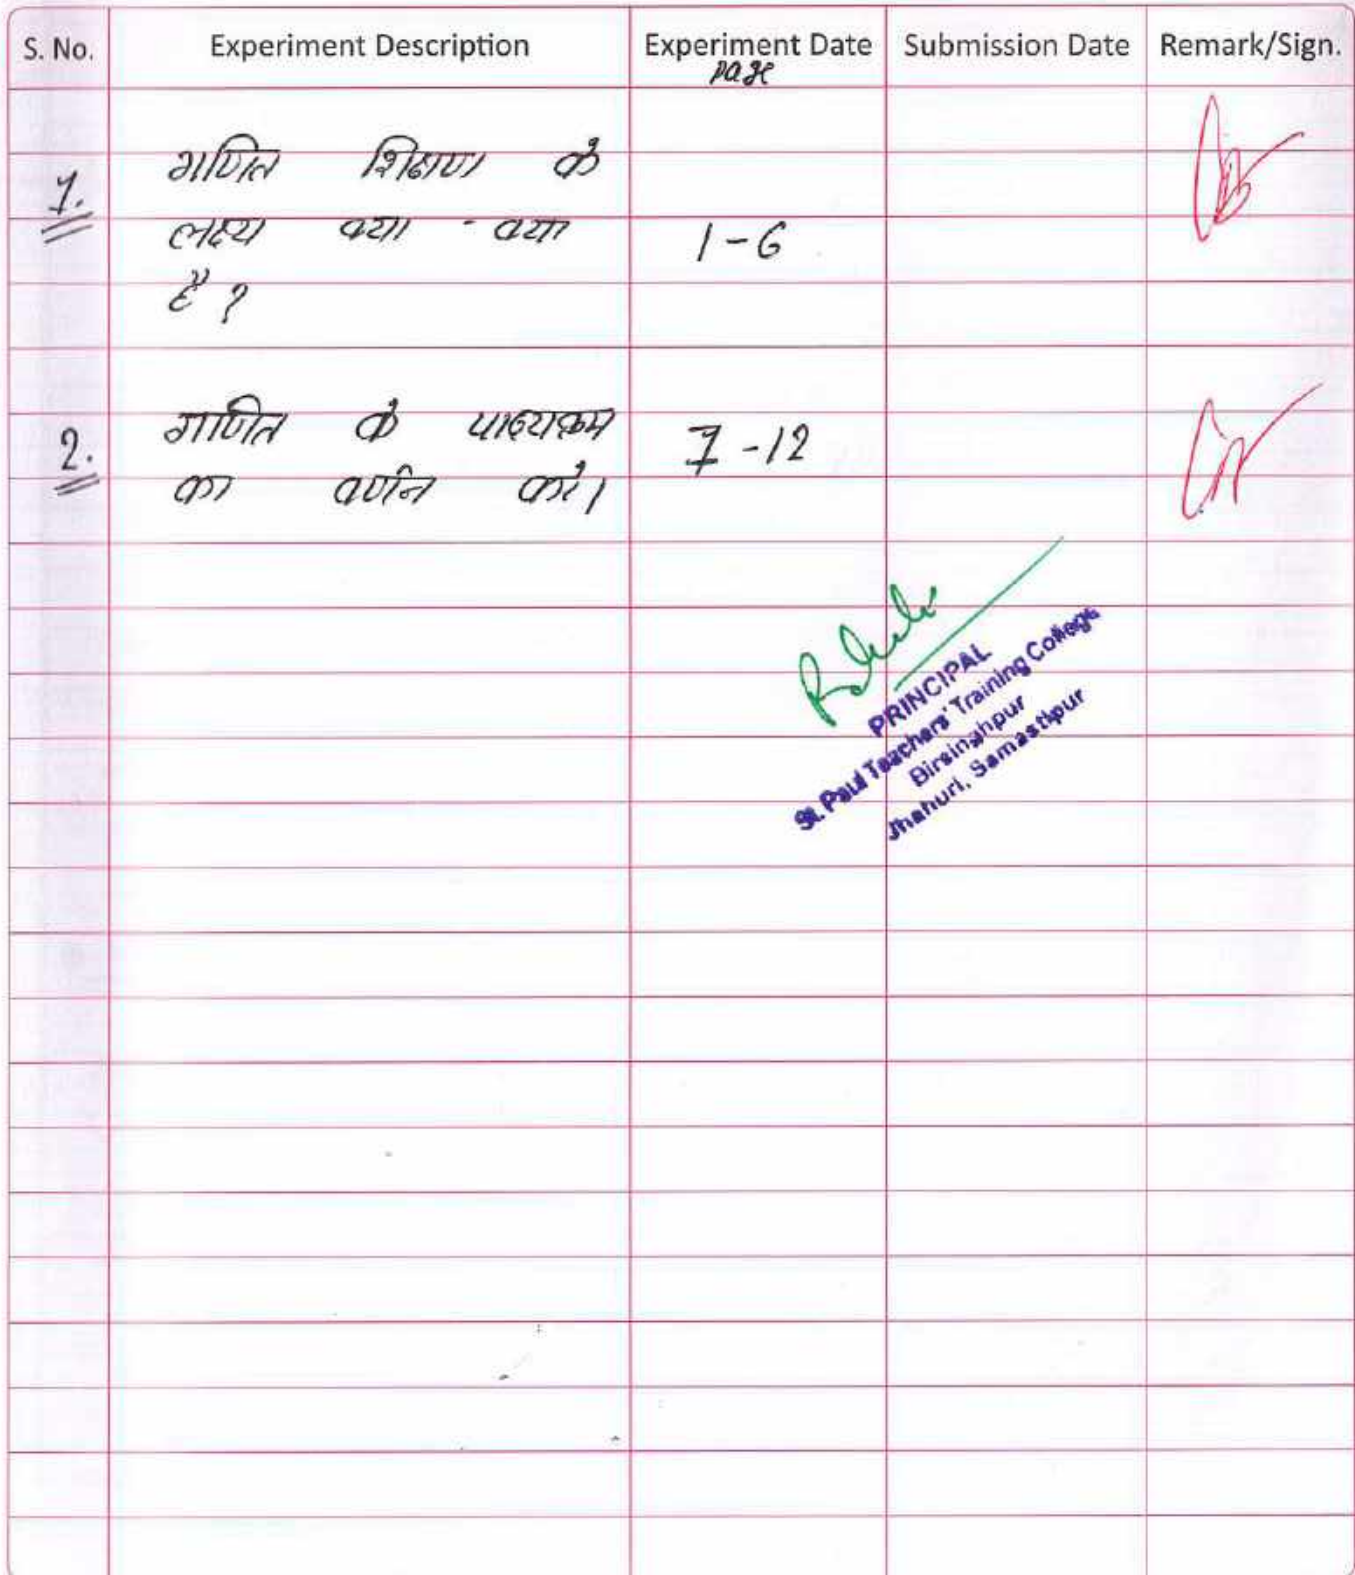 S. No. Experiment Description Experiment Date Submission Date Remark/Sign.
page
1. गणित शिक्षण के
लक्ष्य क्या - क्या 1-6
है ?
2. गणित के पाठ्यक्रम 7-12
का वर्णन करे।
PRINCIPAL
St. Paul Teachers' Training College
Birsinghpur
Jhahuri, Samastipur